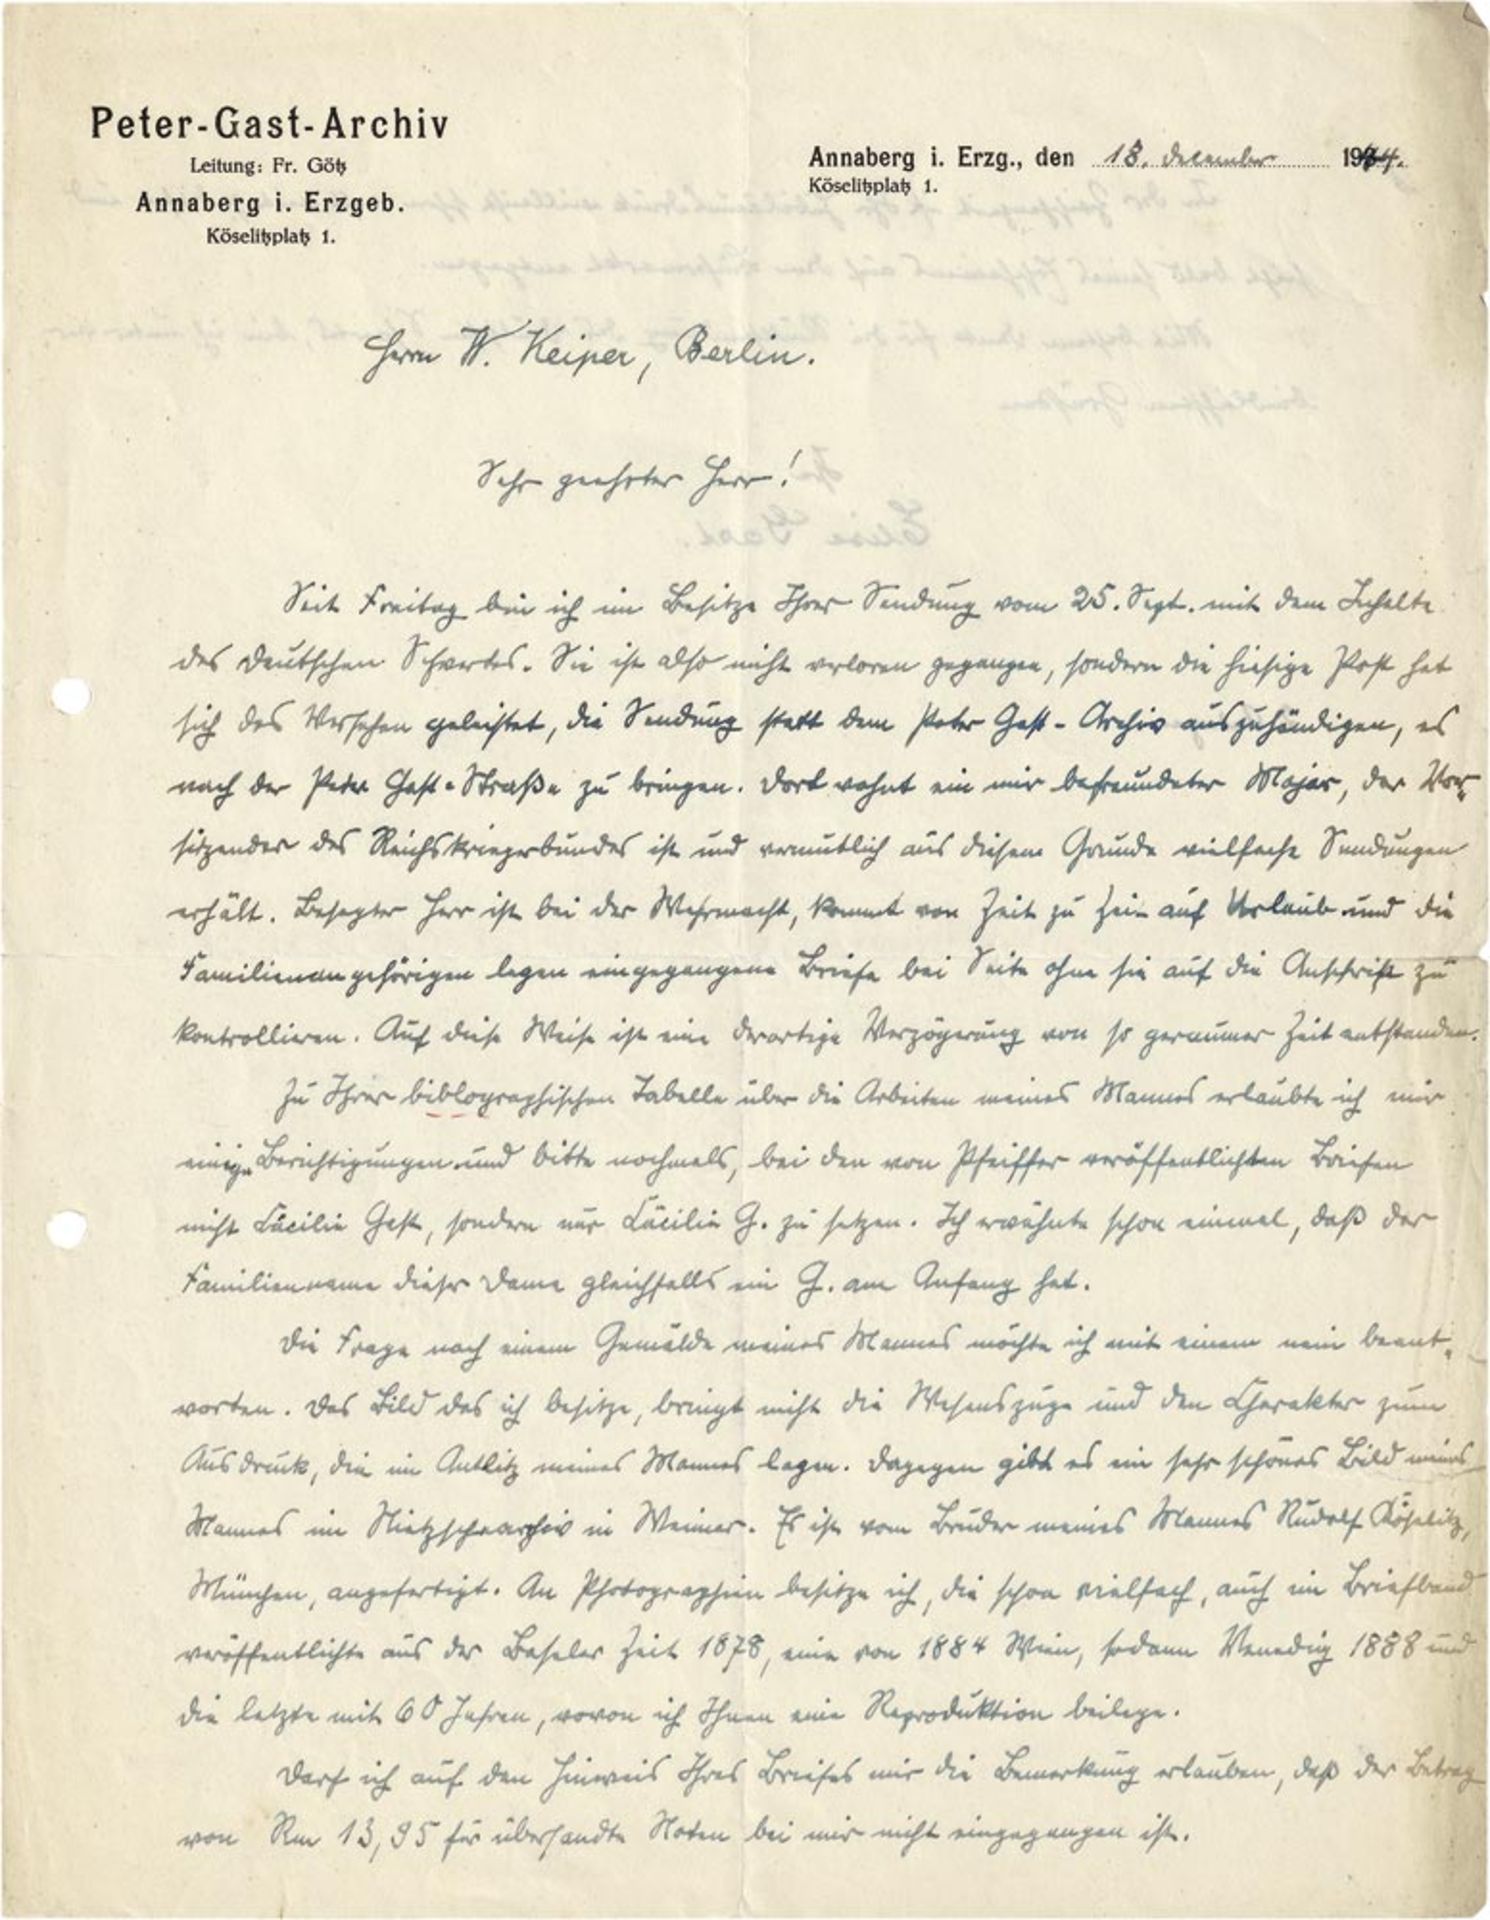 Peter-Gast-Archiv
Leitung: Fr. Götz
Annaberg i. Erzgeb.
Köselitzplatz 1.
Annaberg i. Erzg., den 18. Dezember 1944.
Köselitzplatz 1.
Herrn W. Keiper, Berlin.
Sehr geehrter Herr!
Seit Freitag bin ich im Besitze Ihrer Sendung vom 25. Sept. mit dem Inhalte
des deutschen Schwertes. Sie ist also nicht verloren gegangen, sondern die hiesige Post hat
sich das Versehen geleistet, die Sendung statt dem Peter Gast-Archiv auszuhändigen, es
nach der Peter Gast-Straße zu bringen. Dort wohnt ein mir befreundeter Major, der Vor-
sitzender des Reichskriegerbundes ist und vermutlich aus diesem Grunde vielfache Sendungen
erhält. Besagter Herr ist bei der Wehrmacht, kommt von Zeit zu Zeit auf Urlaub und die
Familienangehörigen legen eingegangene Briefe bei Seite ohne sie auf die Anschrift zu
kontrollieren. Auf diese Weise ist eine derartige Verzögerung von so geraumer Zeit entstanden.
Zu Ihrer biblographischen Tabelle über die Arbeiten meines Mannes erlaubte ich mir
einige Berichtigungen und bitte nochmals, bei den von Pfeiffer veröffentlichten Briefen
nicht Cäcilie Gast, sondern nur Cäcilie G. zu setzen. Ich erwähnte schon einmal, daß der
Familienname dieser Dame gleichfalls ein G. am Anfang hat.
Die Frage nach einem Gemälde meines Mannes möchte ich mit einem nein beant-
worten. Das Bild das ich besitze, bringt nicht die Wesenszüge und den Charakter zum
Ausdruck, die im Antlitz meines Mannes lagen. Dagegen gibt es ein sehr schönes Bild meines
Mannes im Nietzschearchiv in Weimar. Es ist vom Bruder meines Mannes Rudolf Köselitz,
München, angefertigt. An Photographien besitze ich, die schon vielfach, auch im Briefband
veröffentlichte aus der Baseler Zeit 1878, eine von 1884 Wien, sodann Venedig 1888 und
die letzte mit 60 Jahren, wovon ich Ihnen eine Reproduktion beilege.
Darf ich auf den Hinweis Ihres Briefes mir die Bemerkung erlauben, daß der Betrag
von Rm 13,95 für übersandte Noten bei mir nicht eingegangen ist.